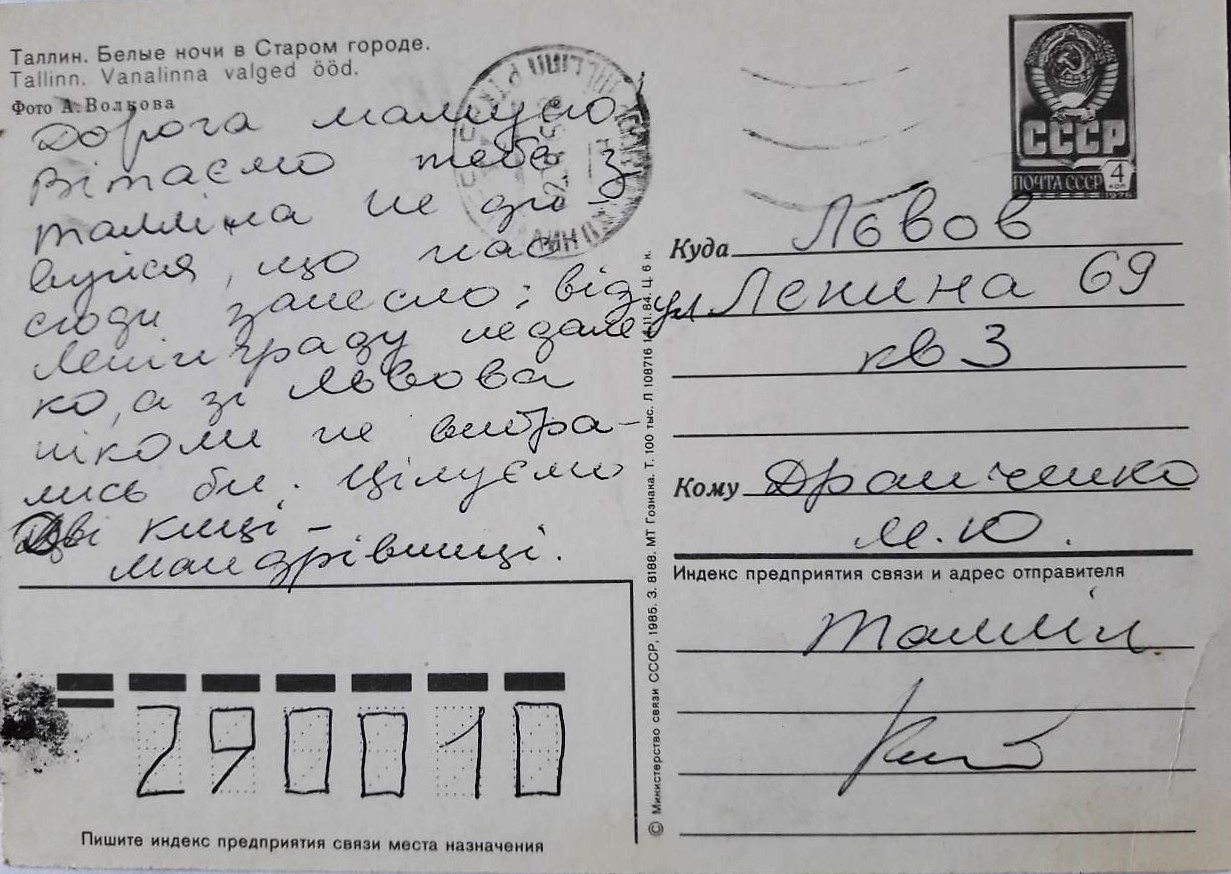 Таллин. Белые ночи в Старом городе.
Tallinn. Vanalinna valged ööd.
Фото А. Волкова
Дорога мамусю
Вітаємо тебе з
Талліна не ди-
вуйся, що нас
сюди занесло: від
Ленінграду недале-
ко, а зі Львова
ніколи не вибра-
лись би. Цілуємо
Дві киці -
мандрівниці.
290010
Пишите индекс предприятия связи места назначения
© Министерство связи СССР, 1985. З. 8188. МТ Гознака. Т. 100 тыс. Л 108716 11.84. Ц. 6 к.
СССР
ПОЧТА СССР 4 коп
1976
Куда Львов
ул Ленина 69
кв 3
Кому Драниченко
М.Ю.
Индекс предприятия связи и адрес отправителя
Таллін